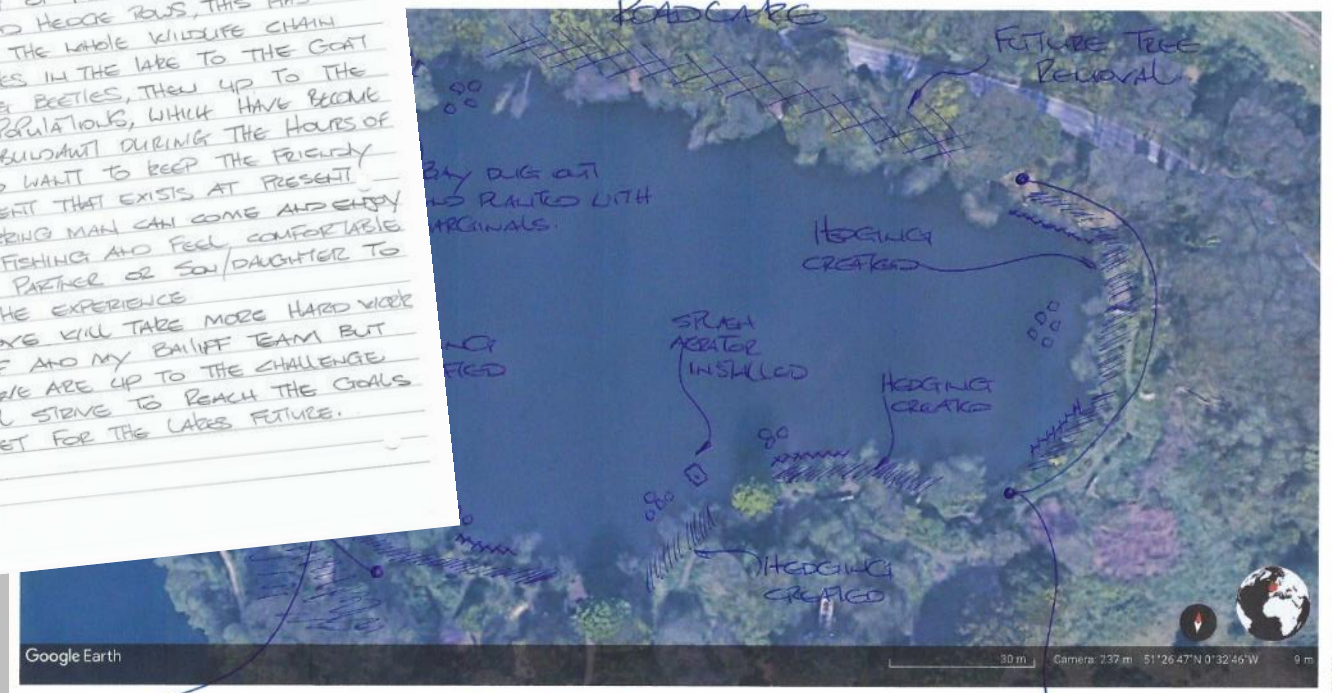 D HEDGE ROWS, THIS HAS
THE WHOLE WILDLIFE CHAIN
ES IN THE LAKE TO THE GOAT
BEETLES, THEN UP TO THE
POPULATIONS, WHICH HAVE BECOME
BUNDANT DURING THE HOURS OF
WANT TO KEEP THE FRIENDLY
ENT THAT EXISTS AT PRESENT
RING MAN CAN COME AND ENJOY
FISHING AND FEEL COMFORTABLE
PARTNER OR SON/DAUGHTER TO
HE EXPERIENCE
OVE WILL TAKE MORE HARD WORK
F AND MY BAILIFF TEAM BUT
WE ARE UP TO THE CHALLENGE
L STRIVE TO REACH THE GOALS
ET FOR THE LAKES FUTURE.
ROADCARE
FUTURE TREE
REMOVAL
BAY DUG OUT
AND PLANTED WITH
MARGINALS.
HEDGING
CREATED
SPLASH
AERATOR
INSTALLED
HEDGING
CREATED
HEDGING
CREATED
Google Earth
30 m
Camera: 237 m 51°26'47"N 0°32'46"W 9 m